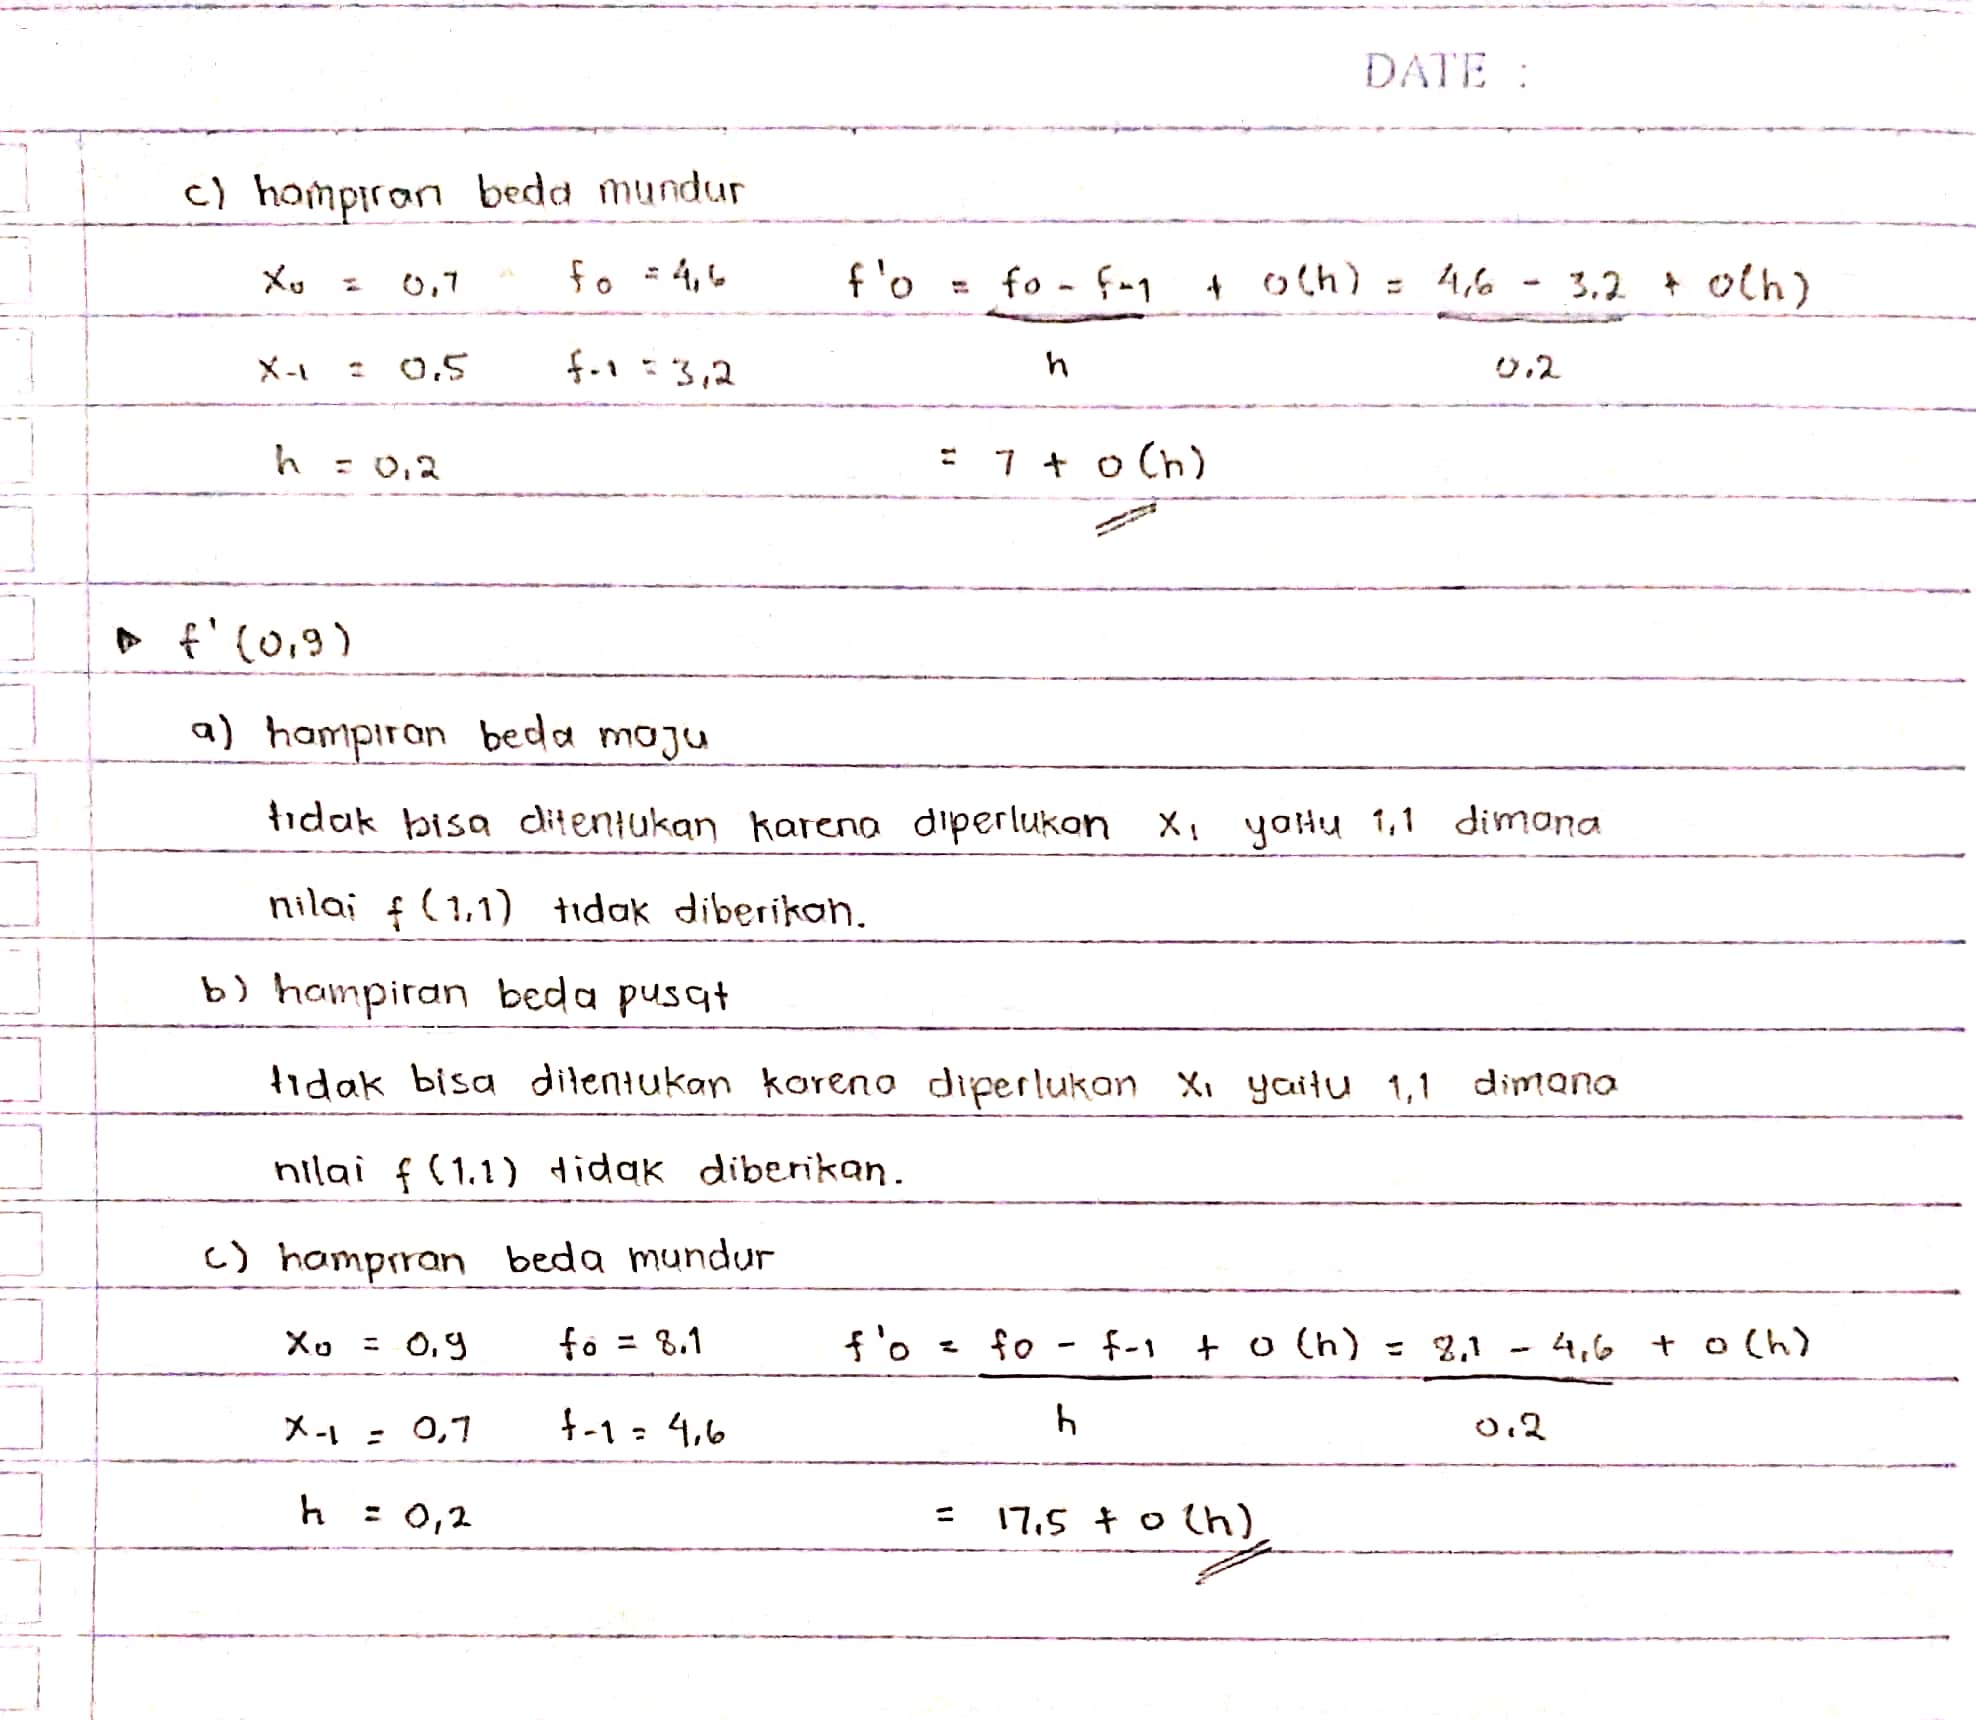 DATE :
c) hampiran beda mundur
x0 = 0,7 f0 = 4,6 f'0 = f0 - f-1 + O(h) = 4,6 - 3,2 + O(h)
x-1 = 0,5 f-1 = 3,2 h 0,2
h = 0,2 = 7 + O(h)
f'(0,9)
a) hampiran beda maju
tidak bisa ditentukan karena diperlukan x1 yaitu 1,1 dimana
nilai f(1,1) tidak diberikan.
b) hampiran beda pusat
tidak bisa ditentukan karena diperlukan x1 yaitu 1,1 dimana
nilai f(1,1) tidak diberikan.
c) hampiran beda mundur
x0 = 0,9 f0 = 8,1 f'0 = f0 - f-1 + O(h) = 8,1 - 4,6 + O(h)
x-1 = 0,7 f-1 = 4,6 h 0,2
h = 0,2 = 17,5 + O(h)